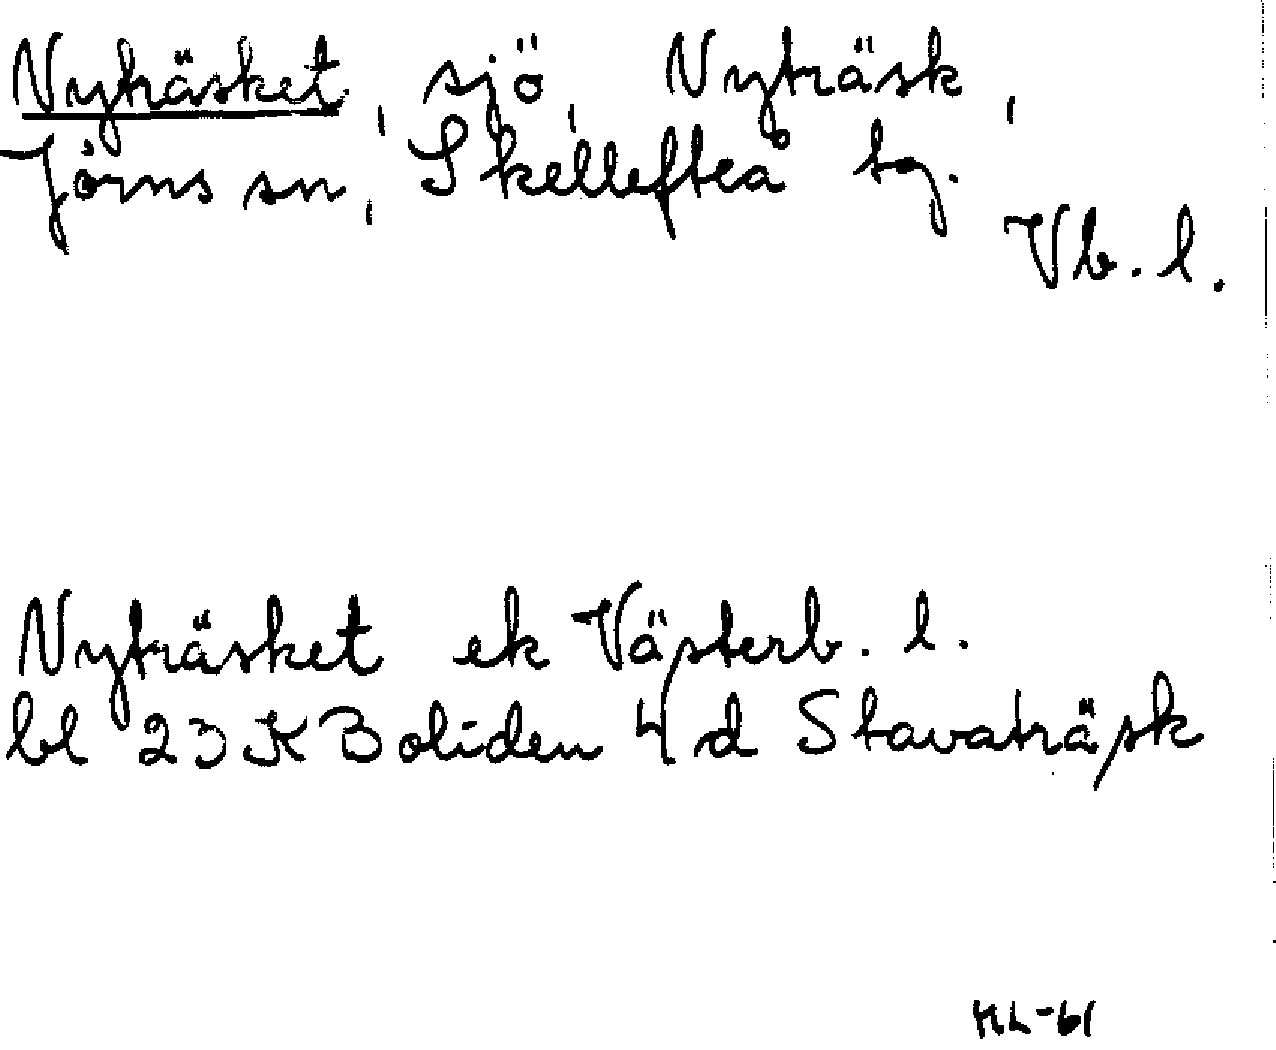 Nyträsket, sjö, Nyträsk,
Jörns sn, Skellefteå tg.
Vb. l.
Nyträsket ek Västerb. l.
bl 23 K Boliden 4 d Stavaträsk
ML-61